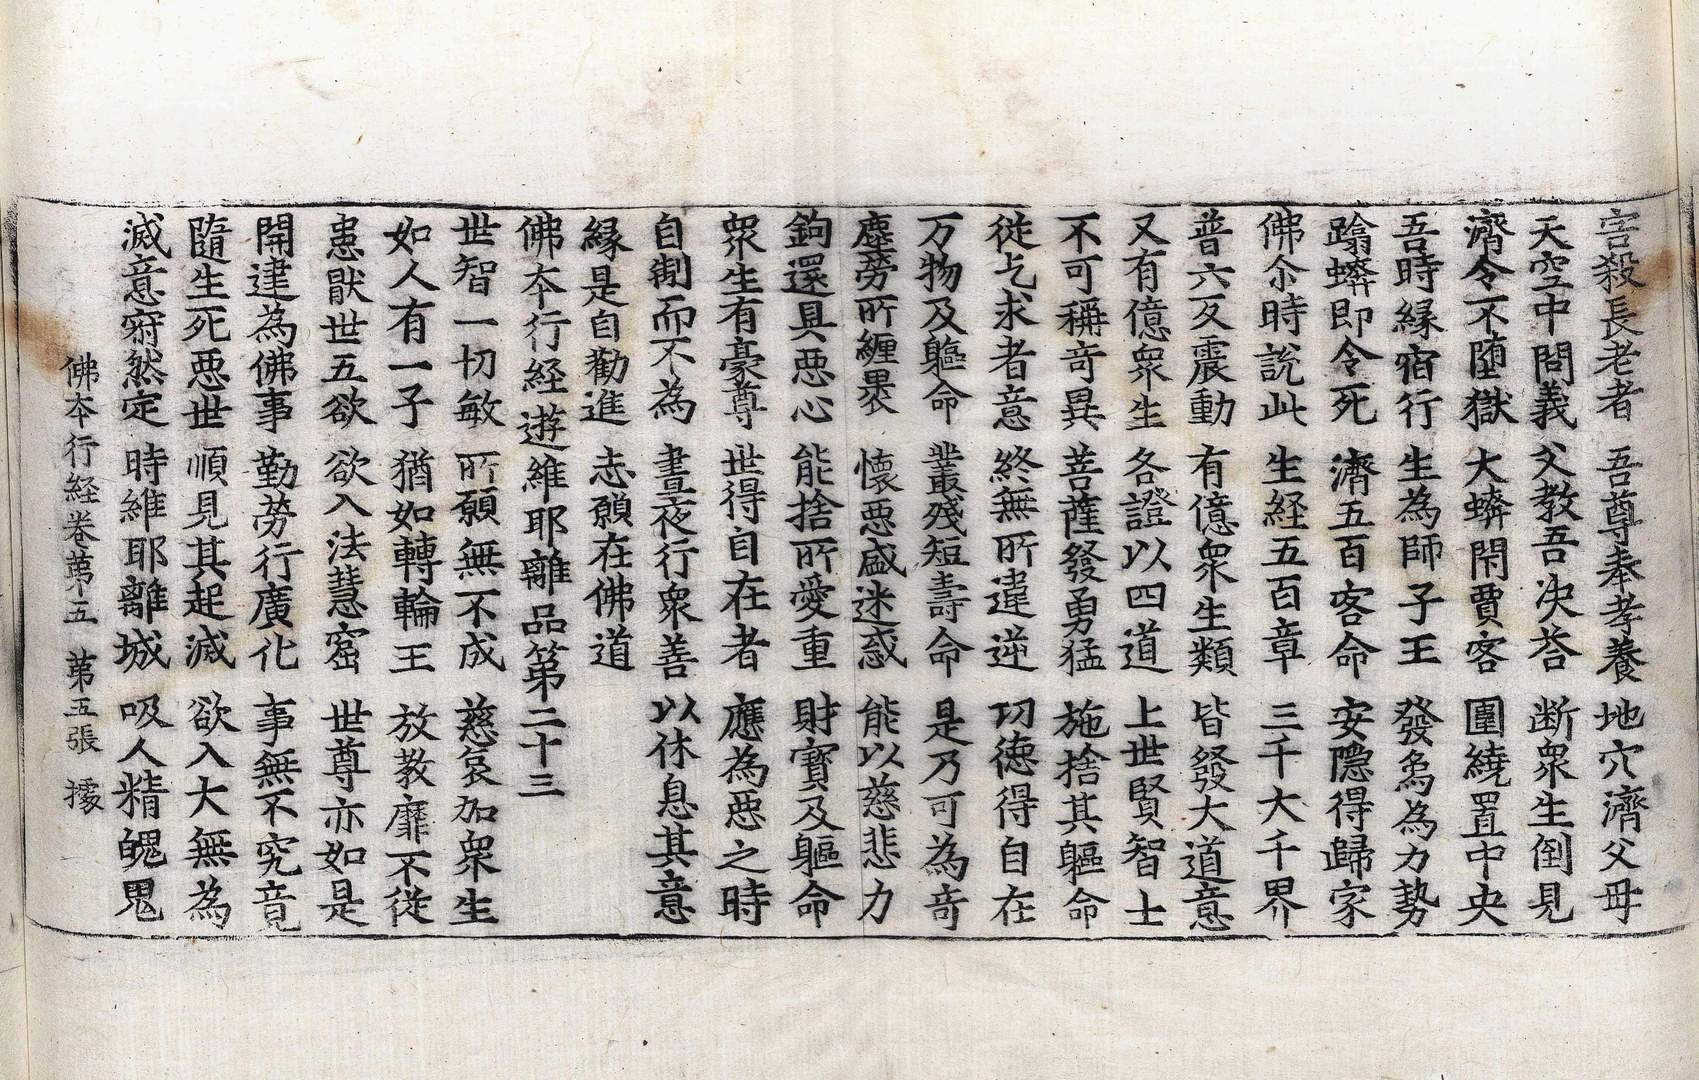 害殺長老者　吾尊奉孝養　地穴濟父母
天空中問義　父教吾決荅　断衆生倒見
濟令不堕獄　大蟒閇賈客　圍繞置中央
吾時縁宿行　生為師子王　發為為力勢
蹹蟒即令死　濟五百客命　安隠得歸家
佛尒時說此　生経五百章　三千大千界
普六反震動　有億衆生類　皆發大道意
又有億衆生　各證以四道　上世賢智士
不可稱竒異　菩薩發勇猛　施捨其軀命
従乞求者意　終無所違逆　功徳得自在
万物及軀命　叢殘短壽命　是乃可為竒
塵勞所纏褁　懷惡盛迷惑　能以慈悲力
鉤還具惡心　能捨所愛重　財寶及軀命
衆生有豪尊　世得自在者　應為惡之時
自制而不為　晝夜行衆善　以休息其意
縁是自勸進　志願在佛道
佛夲行経遊維耶離品第二十三
世智一切敏　所願無不成　慈哀加衆生
如人有一子　猶如轉輪王　放教靡不従
患猒世五欲　欲入法慧窟　世尊亦如是
開建為佛事　勤勞行廣化　事無不究竟
隨生死惡世　順見其起滅　欲入大無為
滅意寂然定　時維耶離城　吸人精魄鬼
佛夲行経卷苐五　苐五張　㩀